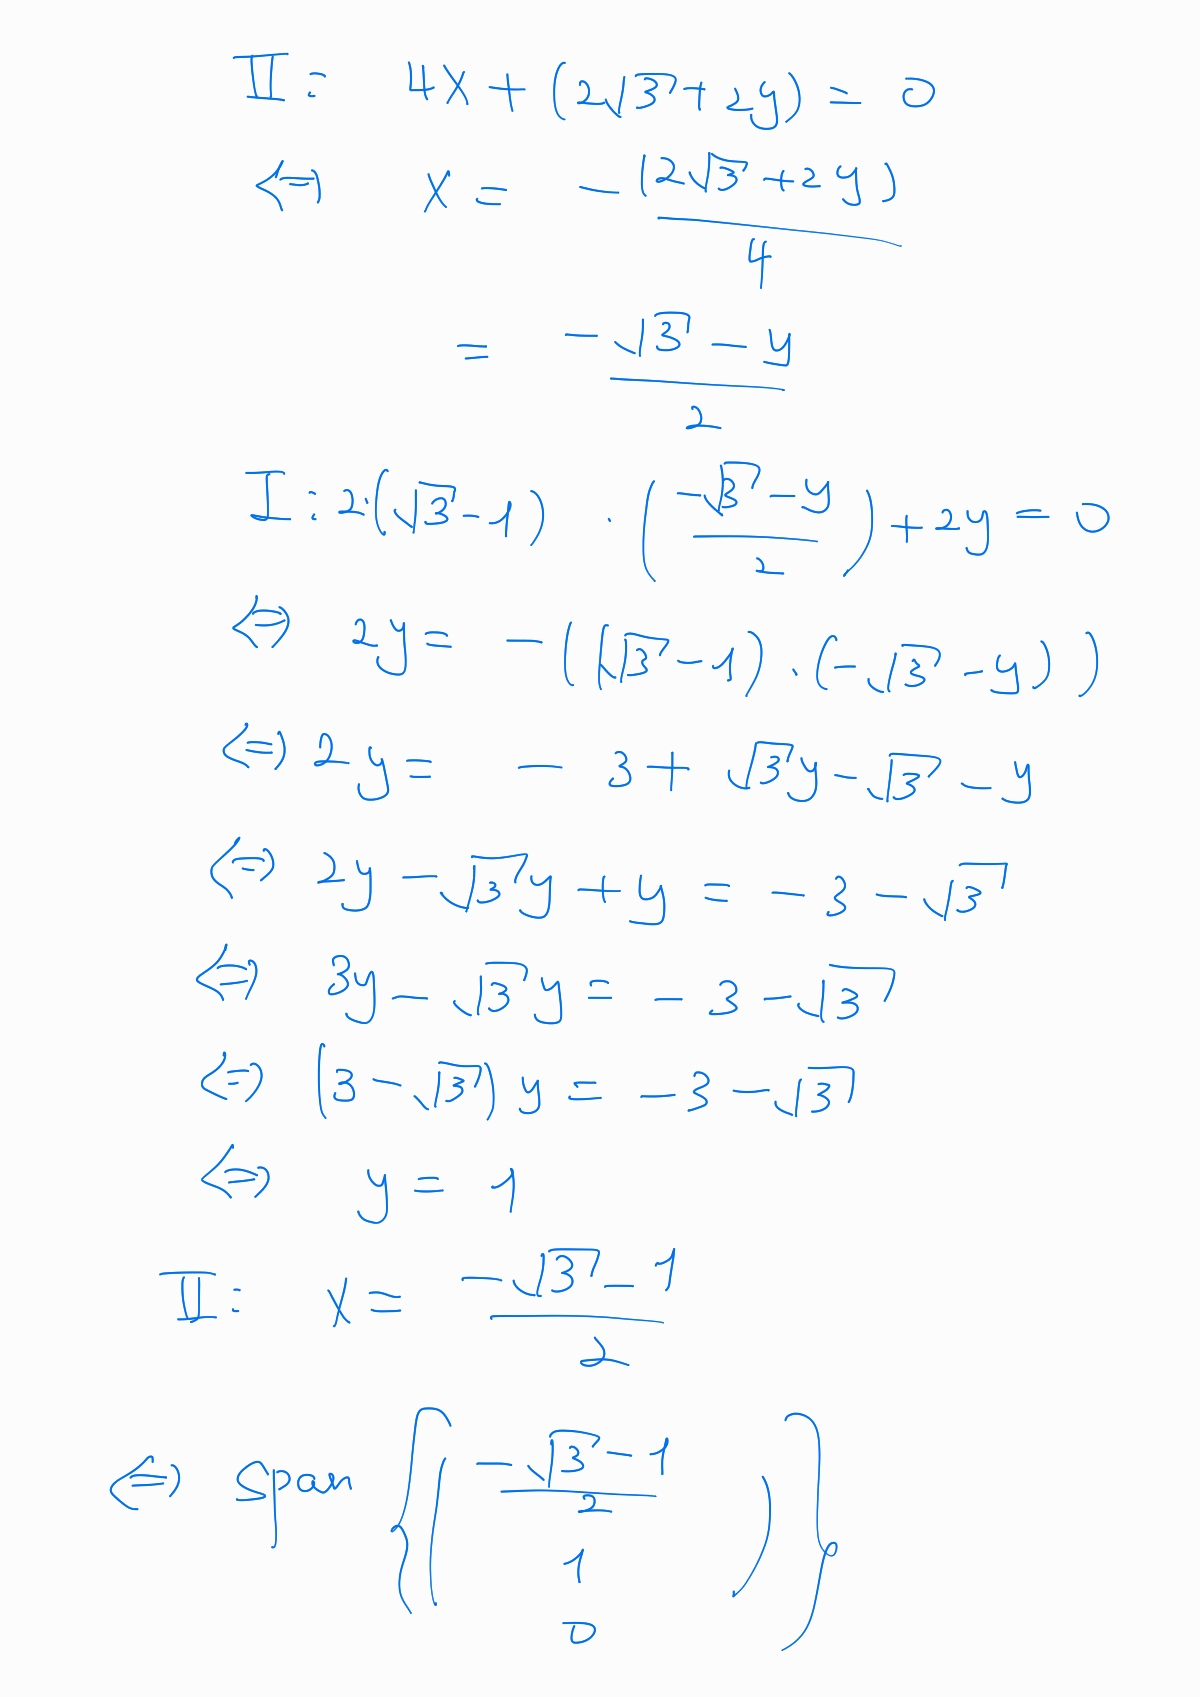 II: 4x + (2√3 + 2y) = 0
⇔ x = -(2√3 + 2y)/4
= (-√3 - y)/2
I: 2·(√3 - 1) · ((-√3 - y)/2) + 2y = 0
⇔ 2y = -((√3 - 1) · (-√3 - y))
⇔ 2y = - 3 + √3y - √3 - y
⇔ 2y - √3y + y = - 3 - √3
⇔ 3y - √3y = - 3 - √3
⇔ (3 - √3) y = - 3 - √3
⇔ y = 1
II: x = (-√3 - 1)/2
⇔ span {( (-√3 - 1)/2
1
0 )}